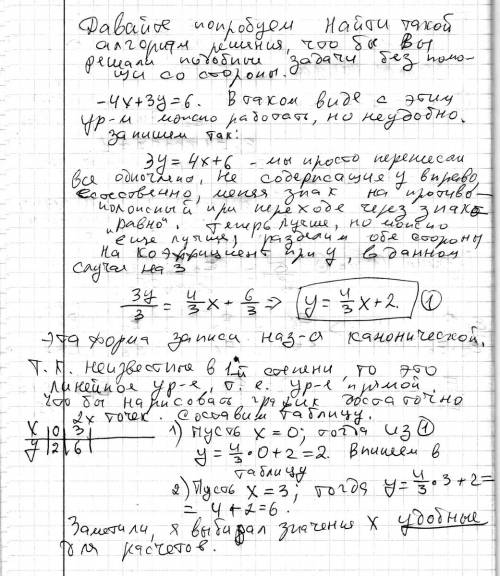 Давайте попробуем найти такой
алгоритм решения, что бы Вы
решали подобные задачи без помо-
щи со стороны.
-4x+3y=6. В таком виде с этим
ур-м можно работать, но неудобно.
Запишем так:
3y=4x+6 - мы просто перенесли
все одночлены, не содержащие y вправо,
естественно, меняя знак на противо-
положный при переходе через знак
"равно". Теперь лучше, но можно
еще лучше, разделим обе стороны
на коэффициент при y, в данном
случае на 3
3y/3 = 4/3 x + 6/3 => y = 4/3 x + 2. ①
Эта форма записи наз-ся канонической.
Т.к. неизвестные в 1й степени, то это
линейное ур-е, т.е. ур-е прямой.
Что бы нарисовать график достаточно
2х точек. Составим таблицу.
x | 0 | 3 |
y | 2 | 6 |
1) Пусть x=0; тогда из ①
y = 4/3 · 0 + 2 = 2. Впишем в
таблицу
2) Пусть x=3; тогда y = 4/3 · 3 + 2 =
= 4+2=6.
Заметили, я выбирал значения x удобные
для расчетов.